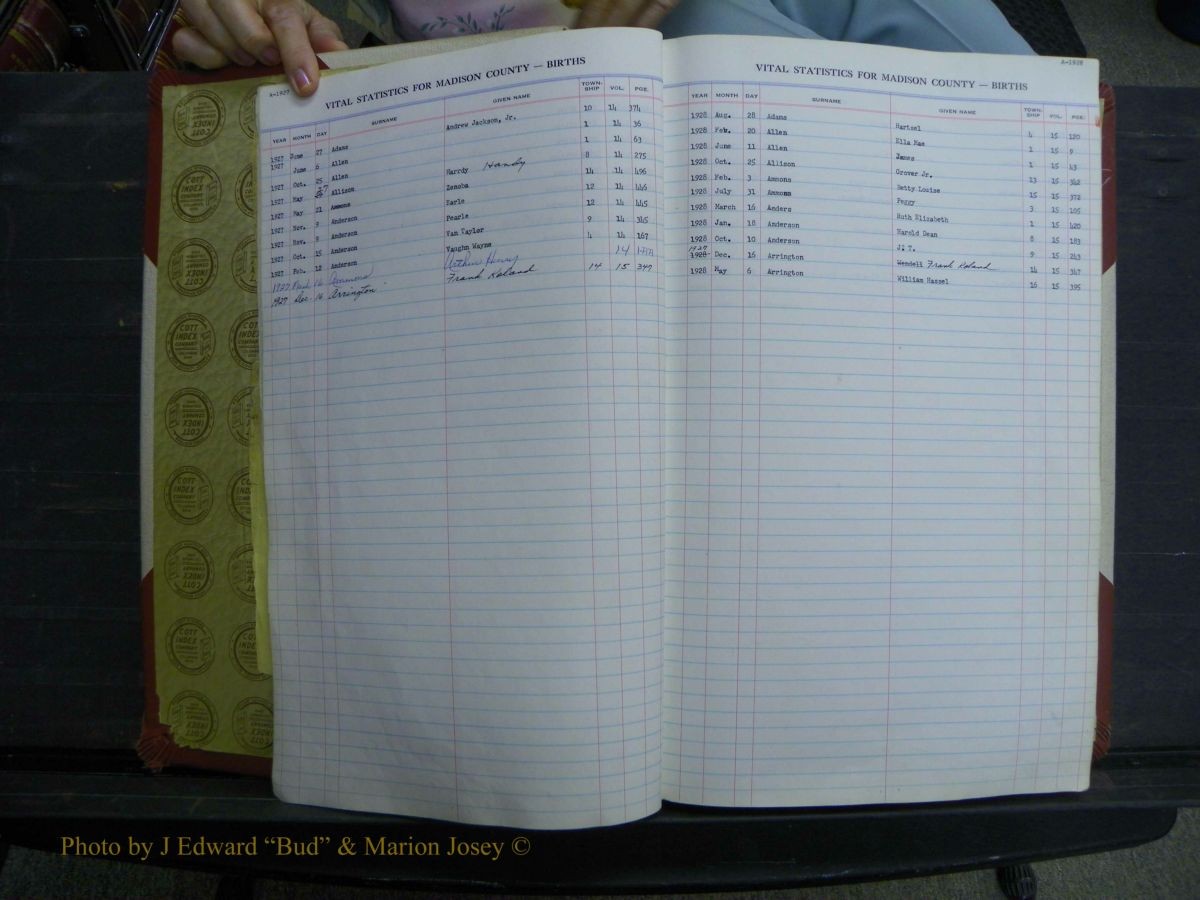 A-1927
VITAL STATISTICS FOR MADISON COUNTY — BIRTHS
YEAR MONTH DAY SURNAME GIVEN NAME TOWNSHIP VOL. PGE.
1927 June 27 Adams Andrew Jackson, Jr. 10 14 374
1927 June 6 Allen 1 14 36
1927 Oct. 25 Allen 1 14 63
1927 May 27 Allison Harrdy Handy 8 14 275
1927 May 21 Ammons Zenoba 14 14 496
1927 Nov. 9 Anderson Earle 12 14 446
1927 Nov. 9 Anderson Pearle 12 14 445
1927 Oct. 15 Anderson Van Taylor 9 14 345
1927 Feb. 12 Anderson Vaughn Wayne 4 14 167
1927 16 Ammons Arthur Henry 14
1927 Dec. 16 Arrington Frank Roland 14 15 347
A-1928
VITAL STATISTICS FOR MADISON COUNTY — BIRTHS
YEAR MONTH DAY SURNAME GIVEN NAME TOWNSHIP VOL. PGE.
1928 Aug. 28 Adams Hartsel 4 15 120
1928 Feb. 20 Allen Ella Mae 1 15 9
1928 June 11 Allen James 1 15 43
1928 Oct. 25 Allison Grover Jr. 13 15 342
1928 Feb. 3 Ammons Betty Louise 15 15 372
1928 July 31 Ammons Peggy 3 15 105
1928 March 16 Anders Ruth Elizabeth 1 15 420
1928 Jan. 18 Anderson Harold Dean 8 15 183
1928 Oct. 10 Anderson J. T. 9 15 243
1927
1928 Dec. 16 Arrington Wendell Frank Roland 14 15 347
1928 May 6 Arrington William Hassel 16 15 395
COTT INDEX COMPANY
Photo by J Edward “Bud” & Marion Josey ©